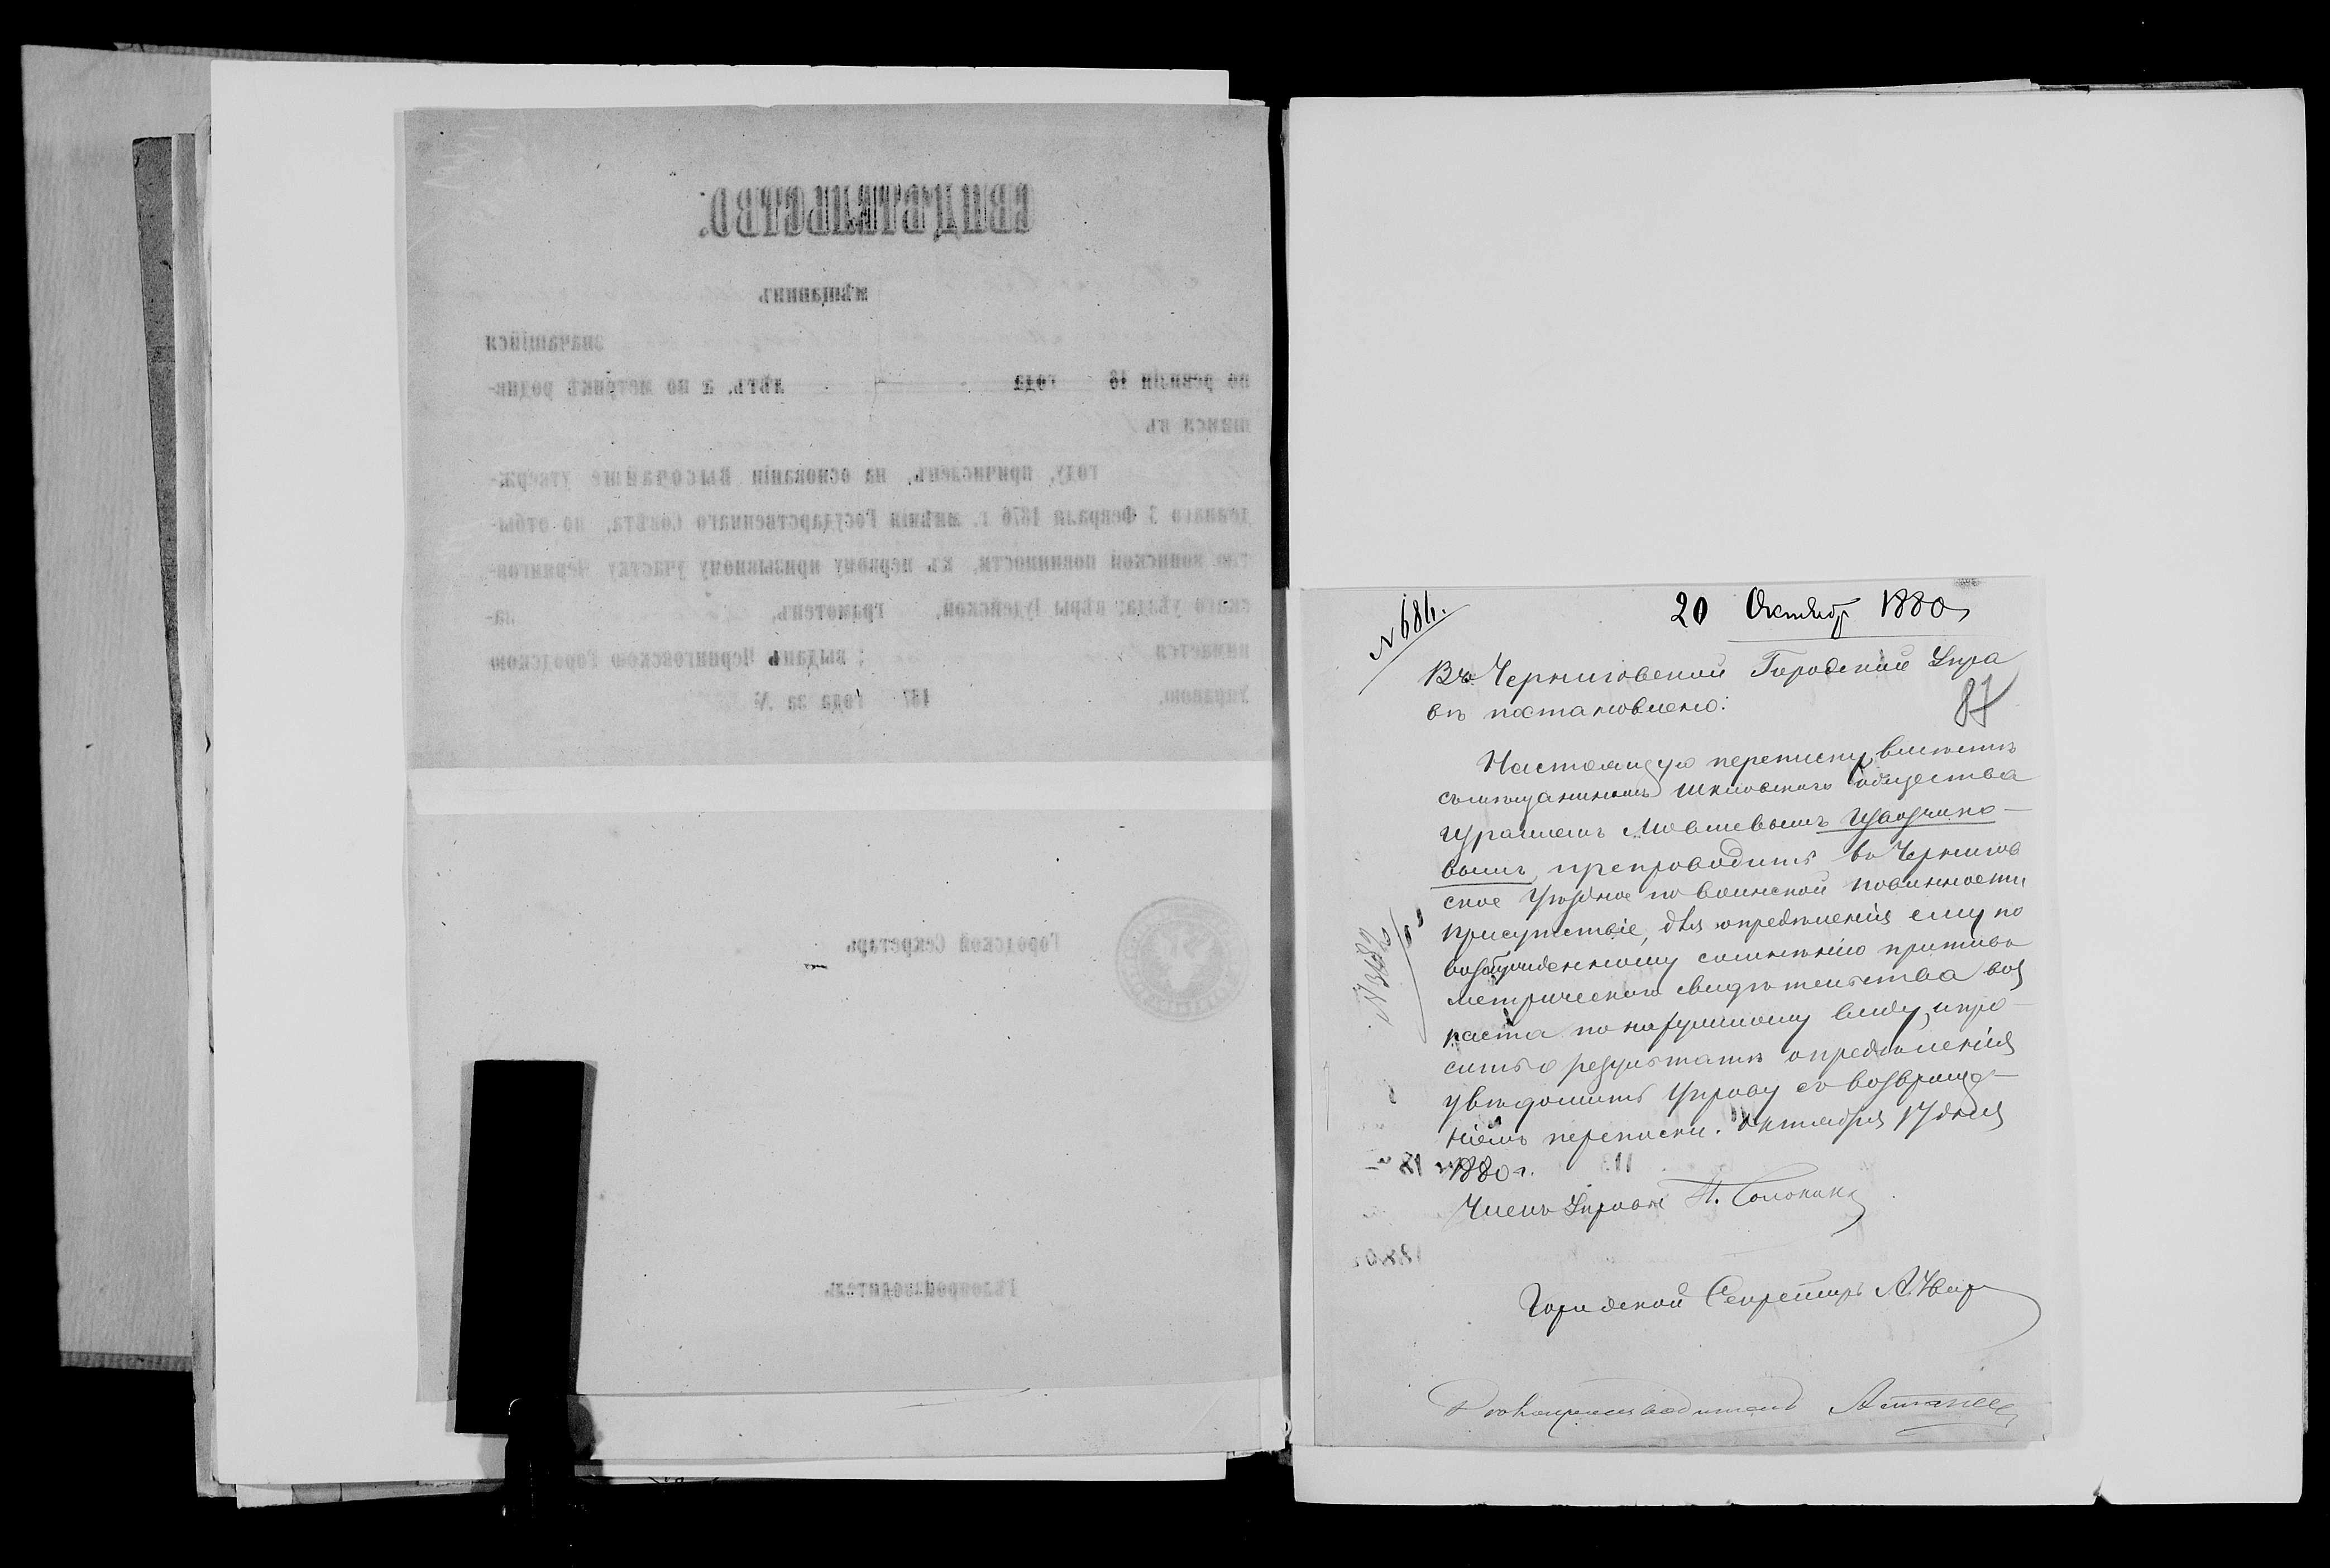 СВИДѢТЕЛЬСТВО.
мѣщанинъ
значащійся
по ревизіи 18 года лѣтъ, а по метрикѣ родив-
шимся въ
году, причисленъ, на основаніи Высочайше утверж-
деннаго 3 Февраля 1876 г. мнѣнія Государственнаго Совѣта, по отбы-
тію воинской повинности, къ первому призывному участку Чернигов-
скаго уѣзда; вѣры Іудейской, грамотенъ, за-
нимается ; выданъ Черниговскою Городскою
Управою. 187 года за №
Городской Секретарь
Дѣлопроизводитель
№ 684.
20 Октябр 1880
Въ Черниговской Городской Упра
вѣ постановлено:
87
Настоящую переписку, вмѣстѣ
съ мѣщаниномъ Шкловскаго общества
Израилемъ Мовшевымъ
вымъ, препроводить въ Чернигов
ское Уѣздное по воинской повинности
Присутствіе, для опредѣленія ему по
возбужденному сомнѣнію противъ
метрическаго свидѣтельства воз
раста по наружному виду, и про-
сить о результатѣ опредѣленія
увѣдомить Управу съ возвраще-
ніемъ переписки. Октября 17 дня
1880 г.
Членъ Управы
Городской Секретарь
Дѣлопроизводитель